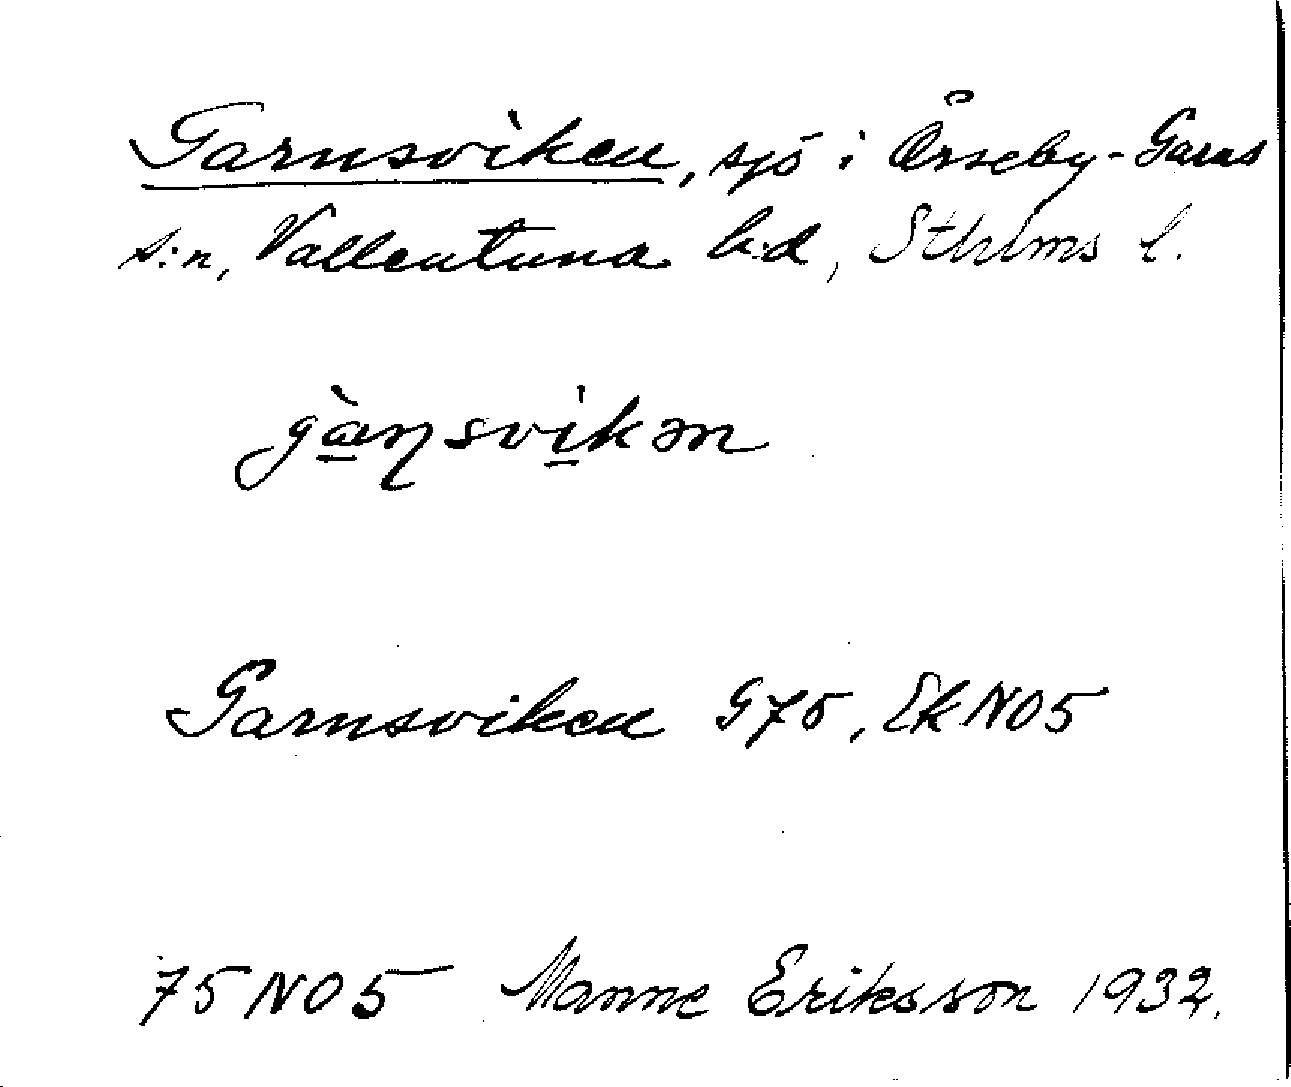 Garnsviken, sjö i Össeby-Garns
s:n, Vallentuna hd, Sthlms l.
gàṇsvikən
Garnsviken G75, Ek NO5
75 NO 5 Manne Eriksson 1932.